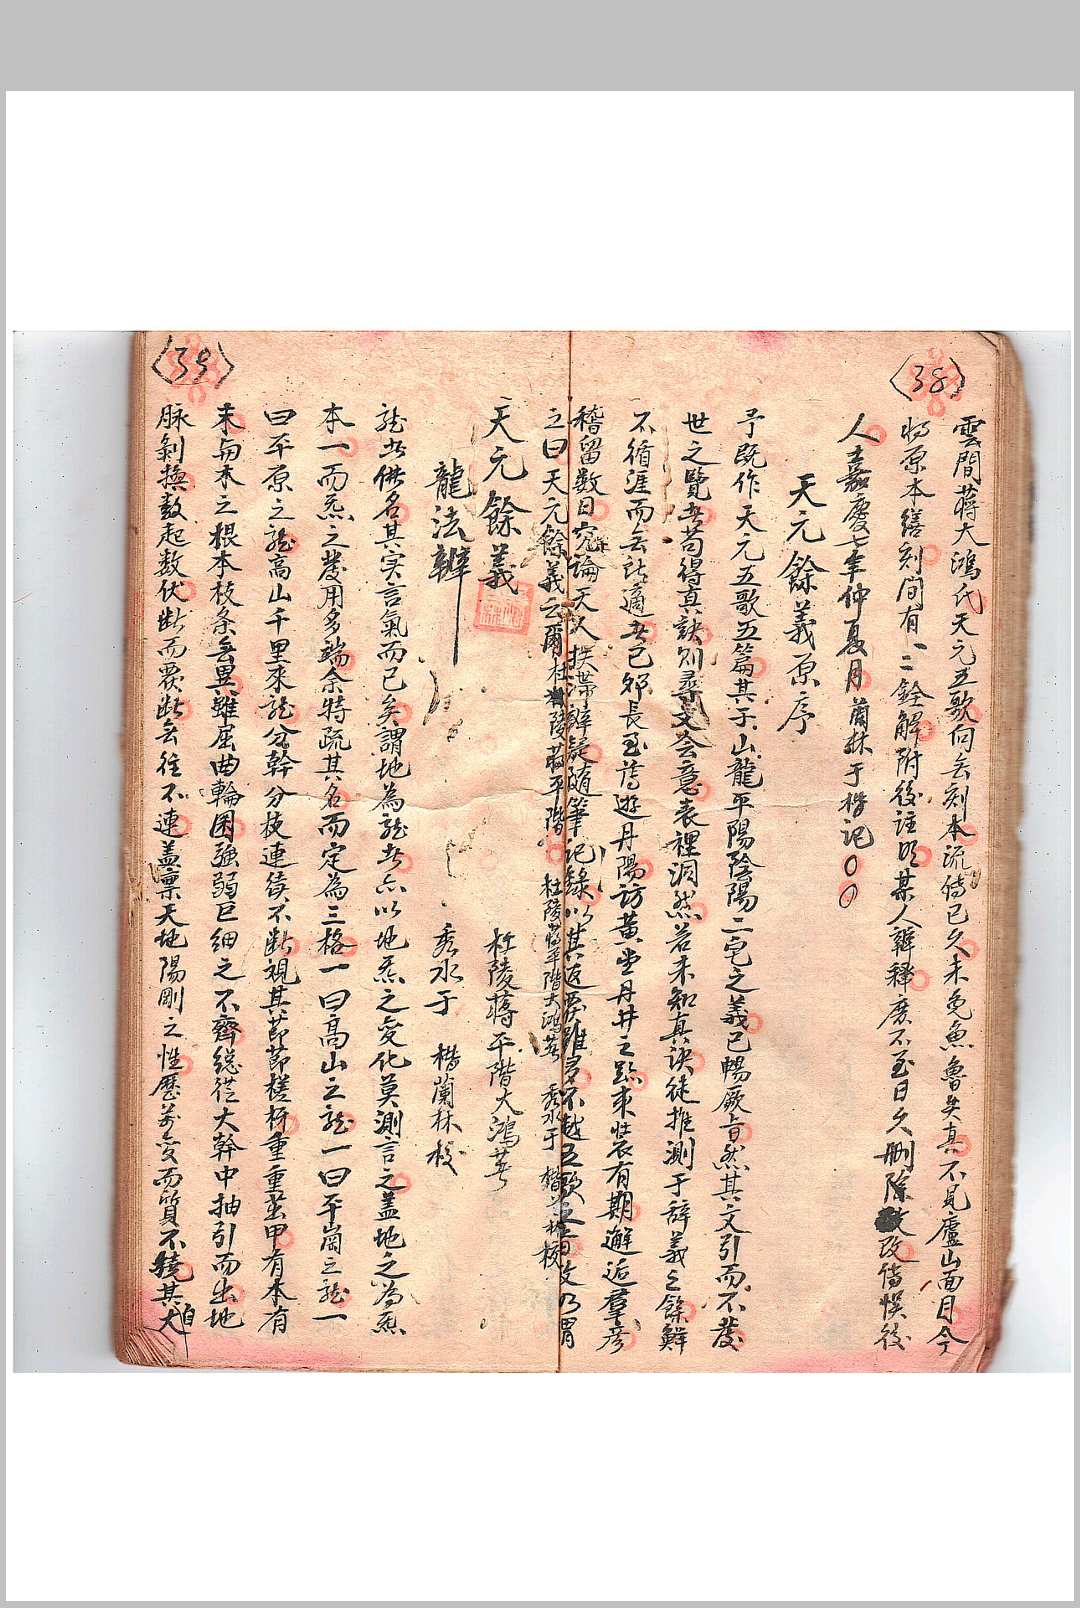 〈38〉
雲間蔣大鴻氏天元五歌向無刻本流傳已久未免魚魯失真不見廬山面目今
將原本繕刻間有一二銓解附後註明某人辨釋庶不至日久刪除改傳悞後
人嘉慶七年仲夏月蘭林于楷記
天元餘義原序
予既作天元五歌五篇其于山龍平陽陰陽二宅之義已暢厥旨然其文引而不發
世之覽者苟得真訣則尋文会意表裡洞然若未知真訣徒推測于辭義之餘鮮
不循涯而無所適者已邜長至薄遊丹陽訪黄堂丹井之跡來裝有期邂逅羣彦
稽留数日究論天人抉滯辧疑随筆記錄以其返覆雖多不越五歌之旨故乃謂
之曰天元餘義云爾杜陵蔣平階 杜陵蔣平階大鴻著 秀水于楷蘭林校
〈39〉
天元餘義
杜陵蔣平階大鴻著
龍法辧
秀水于 楷蘭林校
龍者供名其实言氣而已矣謂地為龍者亦以地炁之变化莫測言之盖地之為炁
本一而炁之發用多端余特疏其名而定為三格一曰高山之龍一曰平崗之龍一
曰平原之龍高山千里來龍分幹分枝連儔不断視其節節槎枒重重茁甲有本有
末与木之根本枝条無異雖屈曲輪囷強弱巨细之不齊総從大幹中抽引而出地
脉剝換数起数伏断而愛断無往不連盖禀天地陽剛之性歷萬变而質不驍其大
自